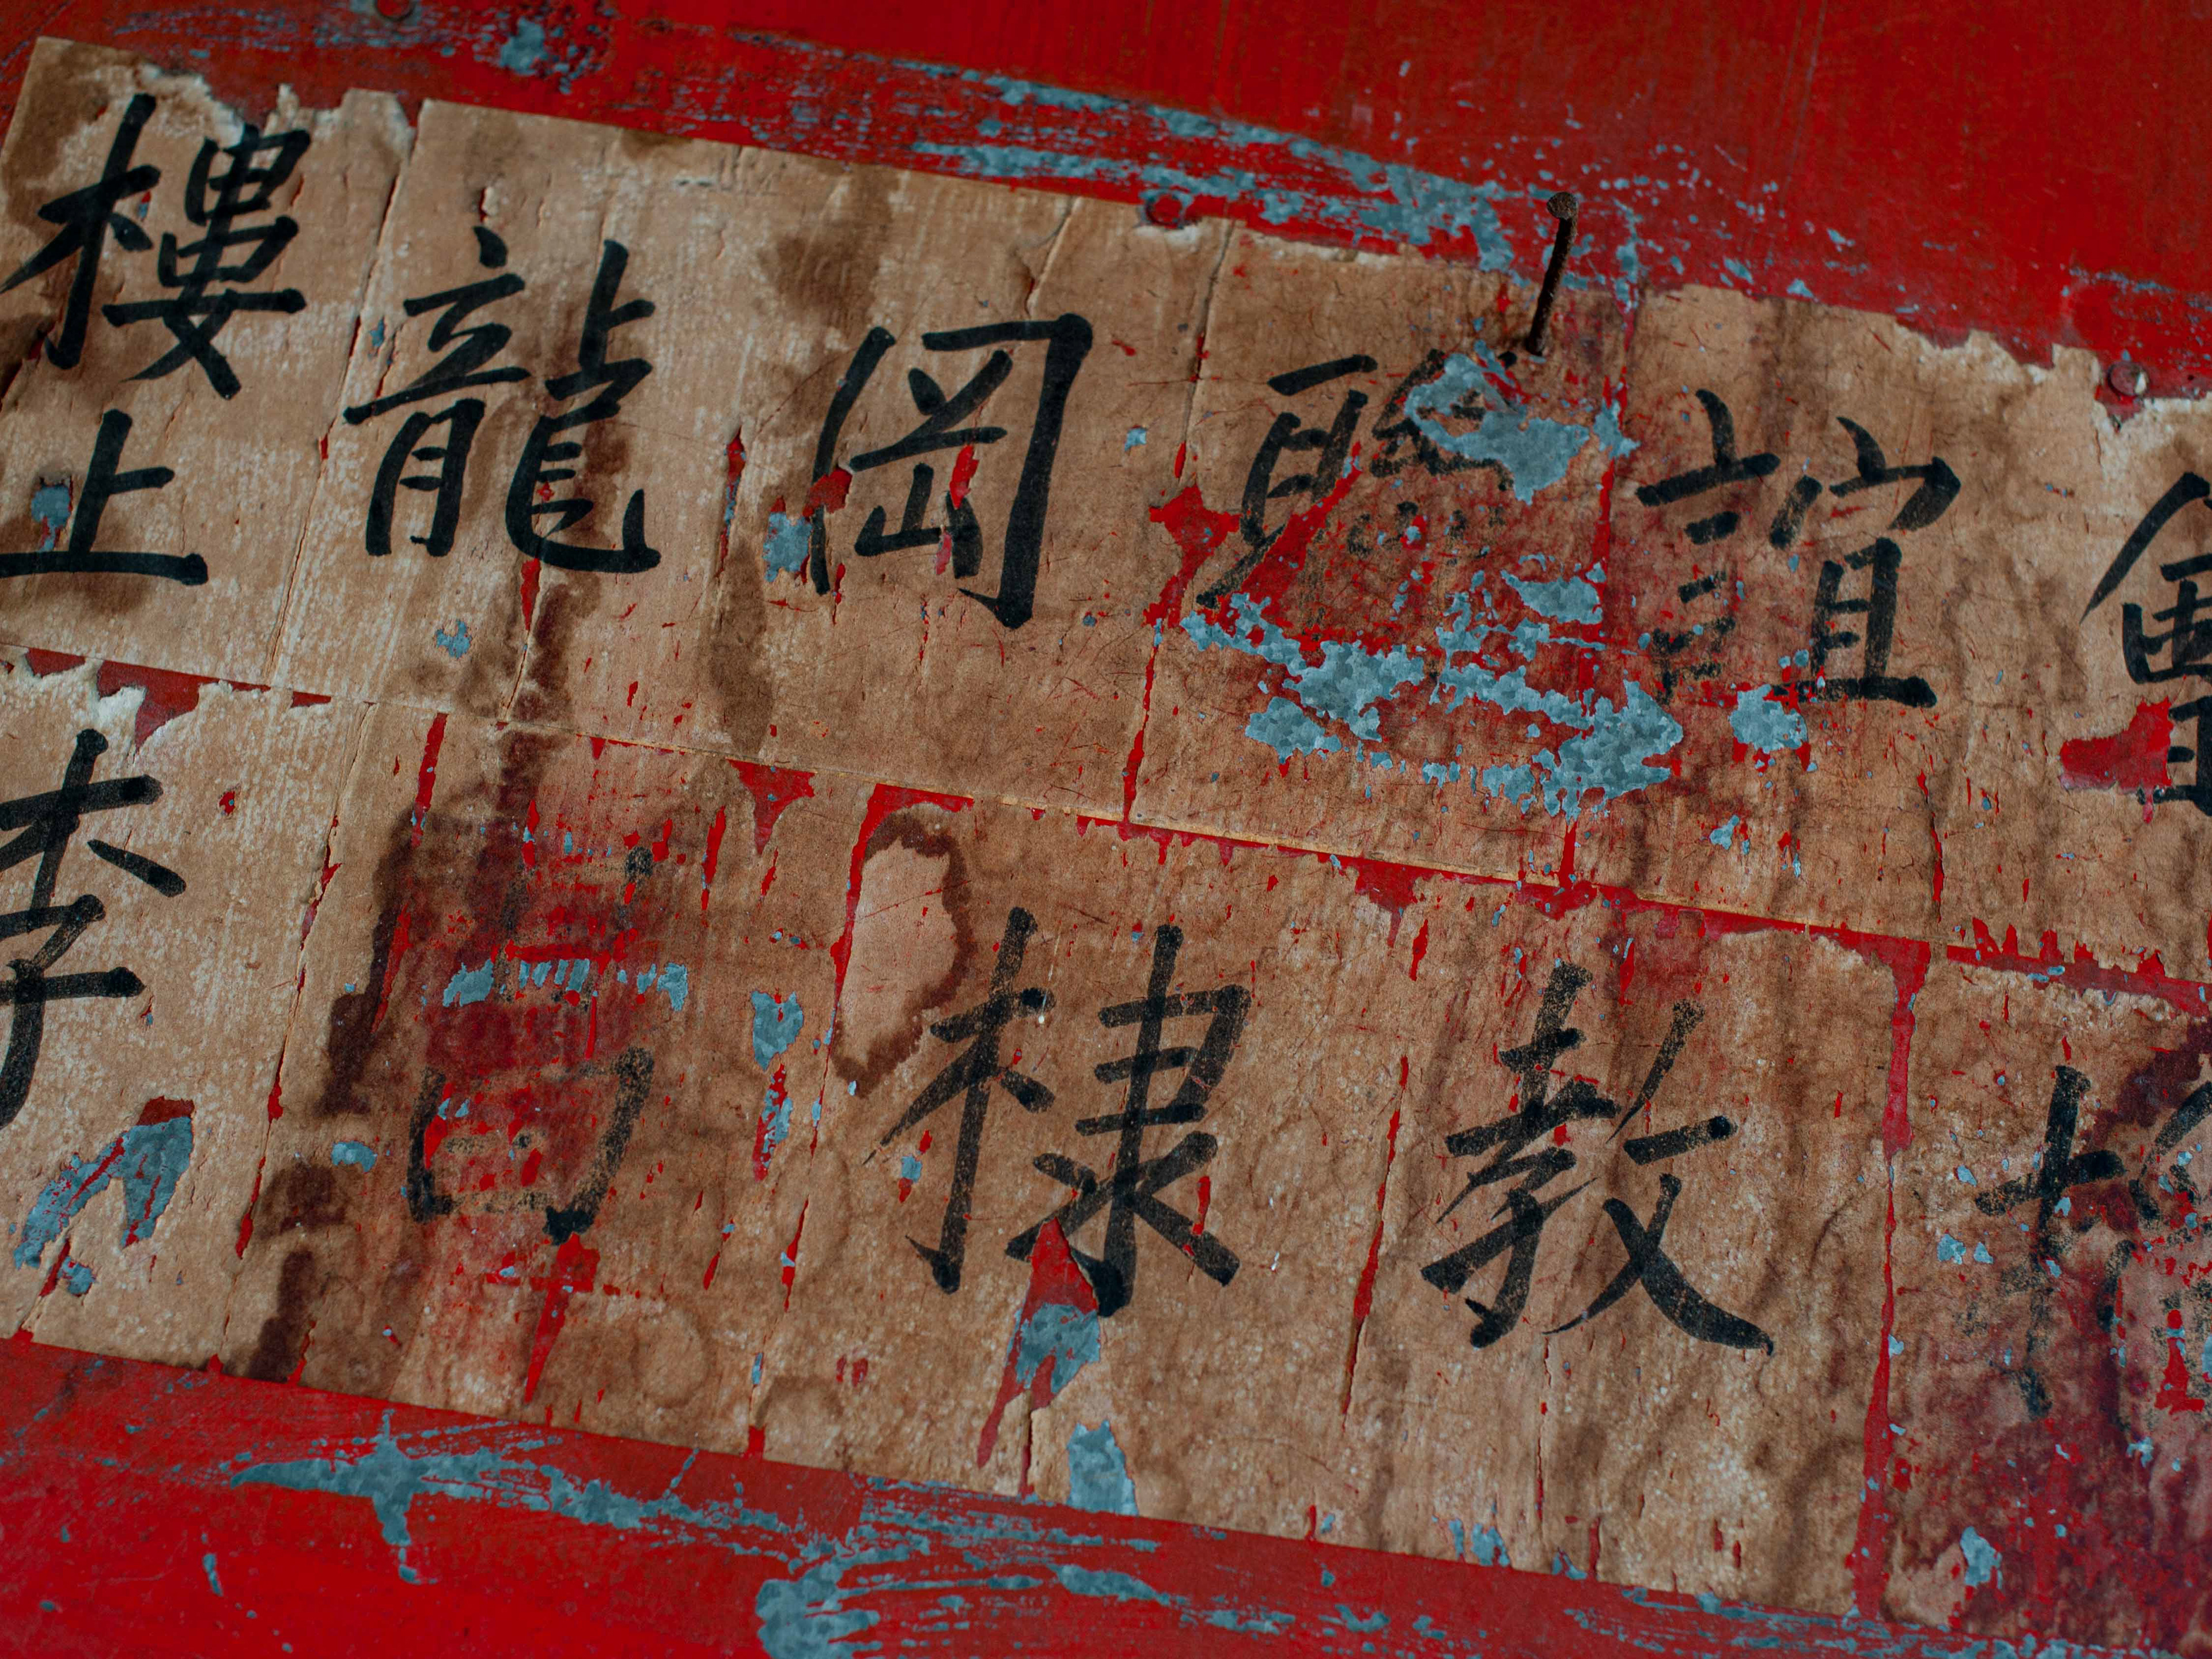 樓上 龍岡聯誼會
李 棣教